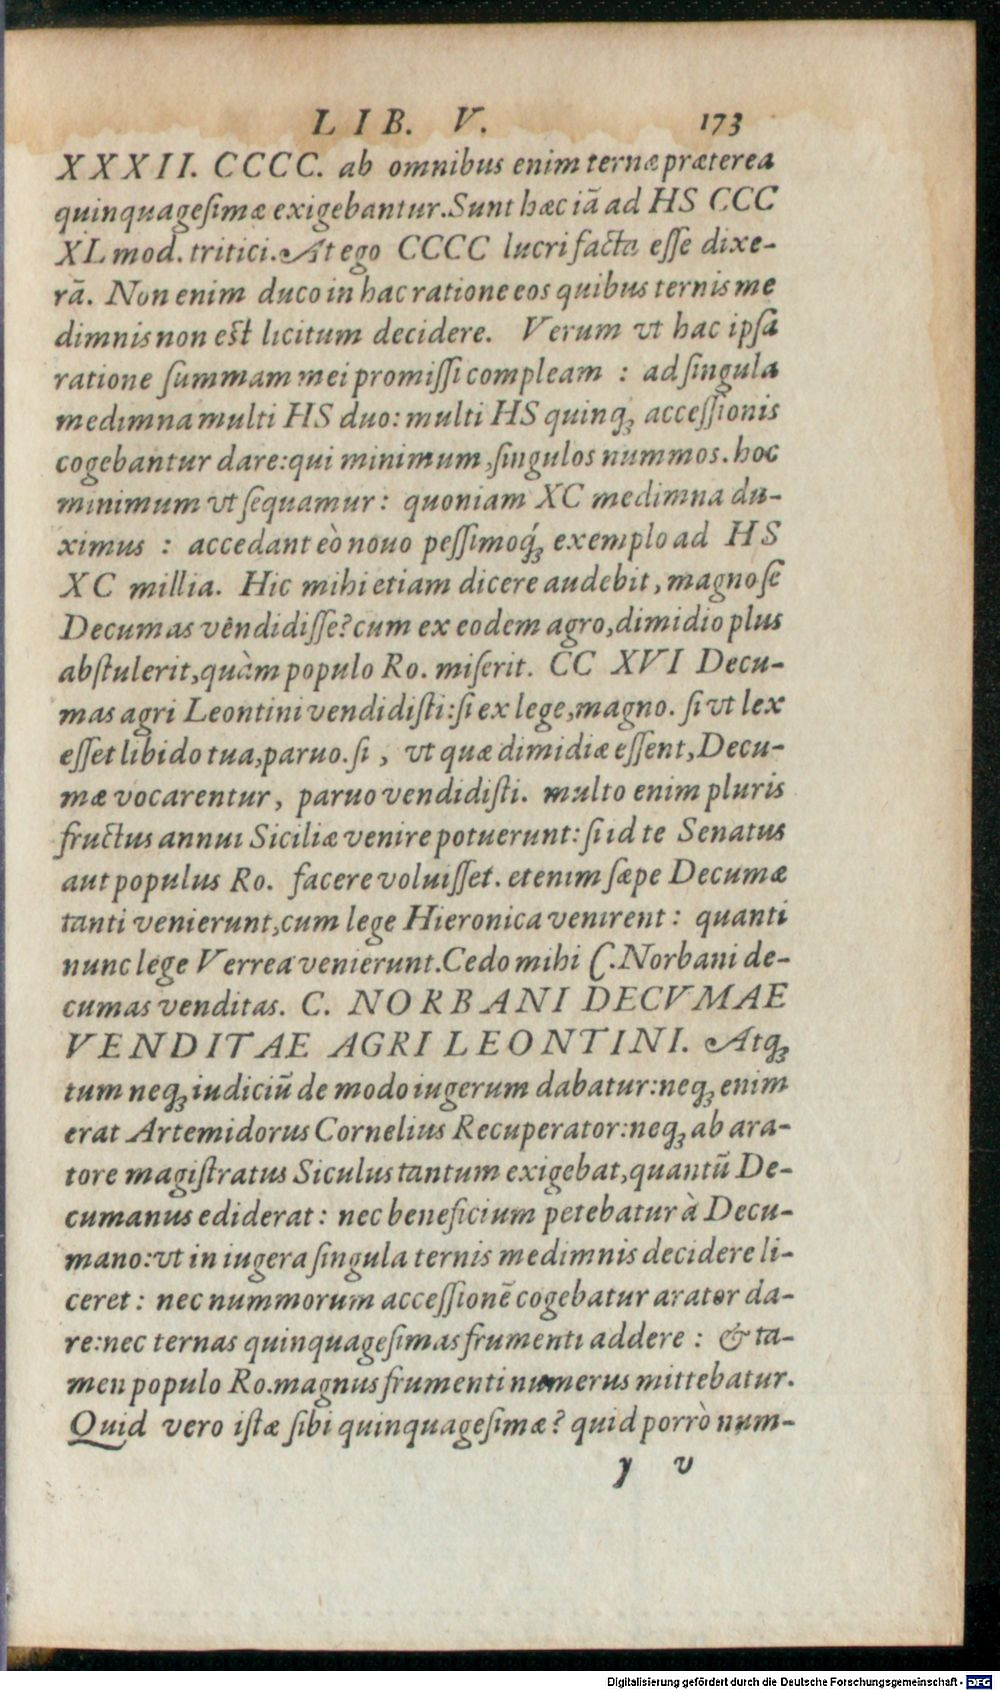 LIB. V. 173
XXXII. CCCC. ab omnibus enim ternæ præterea
quinquagesimæ exigebantur. Sunt hæc iã ad HS CCC
XL mod. tritici. At ego CCCC lucri facta esse dixe-
rã. Non enim duco in hac ratione eos quibus ternis me
dimnis non est licitum decidere. Verum vt hac ipsa
ratione summam mei promissi compleam : ad singula
medimna multi HS duo: multi HS quinq; accessionis
cogebantur dare: qui minimum, singulos nummos. hoc
minimum vt sequamur : quoniam XC medimna du-
ximus : accedant eò nouo pessimoq́; exemplo ad HS
XC millia. Hic mihi etiam dicere audebit, magno se
Decumas vẽndidisse? cum ex eodem agro, dimidio plus
abstulerit, quàm populo Ro. miserit. CC XVI Decu-
mas agri Leontini vendidisti: si ex lege, magno. si vt lex
esset libido tua, paruo. si , vt quæ dimidiæ essent, Decu-
mæ vocarentur, paruo vendidisti. multo enim pluris
fructus annui Siciliæ venire potuerunt: si id te Senatus
aut populus Ro. facere voluisset. etenim sæpe Decumæ
tanti venierunt, cum lege Hieronica venirent : quanti
nunc lege Verrea venierunt. Cedo mihi C. Norbani de-
cumas venditas. C. NORBANI DECVMAE
VENDITAE AGRI LEONTINI. Atq;
tum neq; iudiciũ de modo iugerum dabatur: neq; enim
erat Artemidorus Cornelius Recuperator: neq; ab ara-
tore magistratus Siculus tantum exigebat, quantũ De-
cumanus ediderat : nec beneficium petebatur à Decu-
mano: vt in iugera singula ternis medimnis decidere li-
ceret : nec nummorum accessionẽ cogebatur arator da-
re: nec ternas quinquagesimas frumenti addere : & ta-
men populo Ro. magnus frumenti numerus mittebatur.
Quid vero istæ sibi quinquagesimæ? quid porrò num-
y v
Digitalisierung gefördert durch die Deutsche Forschungsgemeinschaft - DFG